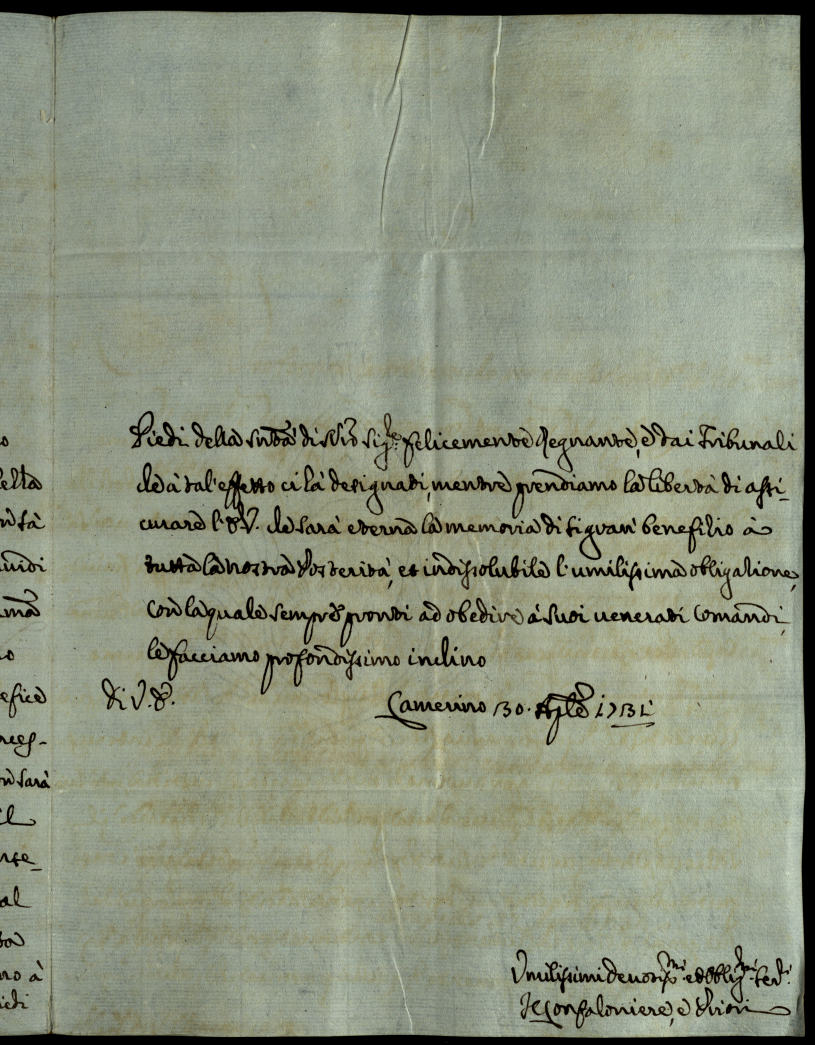 o
ella
nsà
uidi
ima
o
efice
nces-
on sarà
il
nse_
al
ta
no à
iedi
Piedi della Sntà di No Sigre felicemente Regnante, e dai Tribunali
che à tal'effetto ci hà designati, mentre prendiamo la libertà di assi-
curare l'E.V. che sarà eterna la memoria di sì gran benefizio à
tutta la nostra Posterità, et indissolubile l'umilissima obligazione,
con la quale sempre pronti ad obedire à suoi venerati Comandi,
le facciamo profondissimo inchino
Di V.E.
Camerino 30. Aple 1731
Umilissimi Devotismi ed Obligmi Servi
Il Confaloniere, e Priori